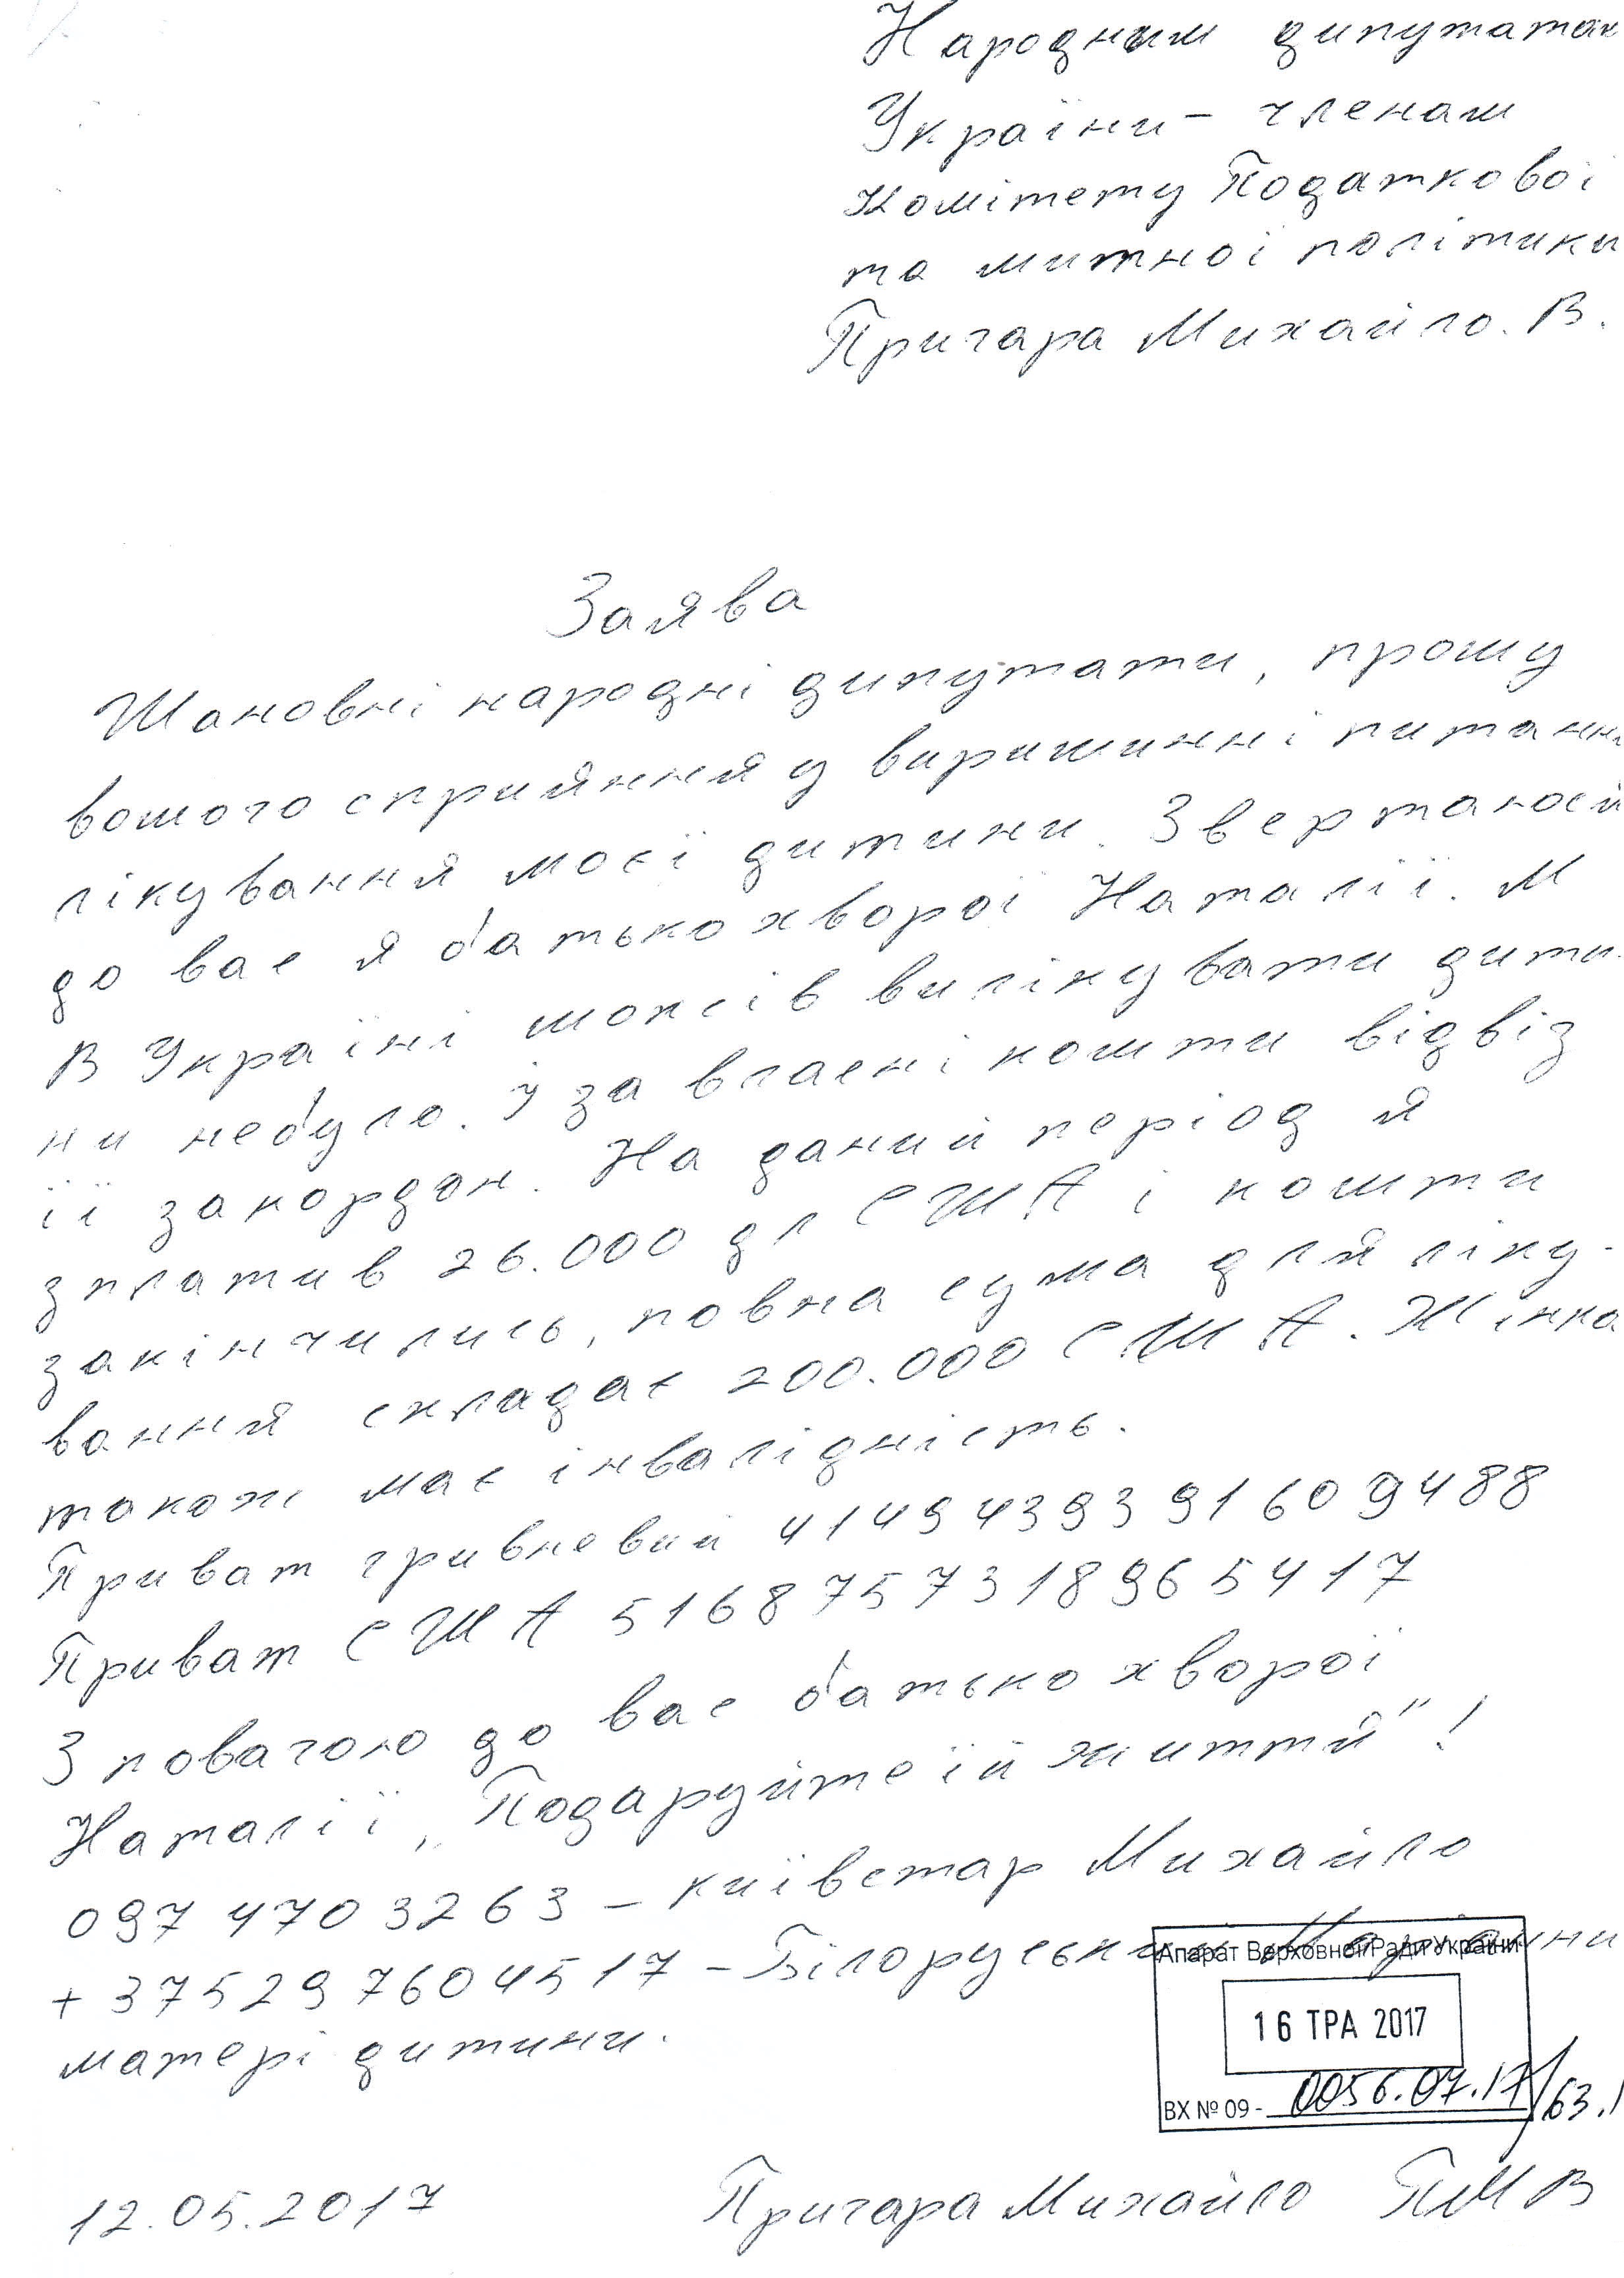 Народным дипутатам
України - членам
Комітету Податкової
та митної політики
Пригара Михайло. В.
Заява
Шановні народні дипутати, прошу
вашого сприяння у виришинні питання
лікування моєї дитини. Звертаюсь
до вас я батько хворої Наталії. М
В Україні шансів вилікувати дити-
ни небуло. І за власні кошти відвіз
її закордон. На даний період я
зплатив 26.000 дл США і кошти
закінчились, повна сума для ліку-
вання складає 200.000 США. Жінка
також має інвалідність.
Приват гривневий 4149439391609488
Приват США 5168757318965417
З повагою до вас батько хворої
Наталії „Подаруйте їй життя"!
097 4703263 - київстар Михайло
+375297604517 - Білоруський Маріанни
матері дитини.
Апарат Верховної Ради України
16 ТРА 2017
ВХ № 09 - 0056.07.17/63.1
12.05.2017 Пригара Михайло ПМВ